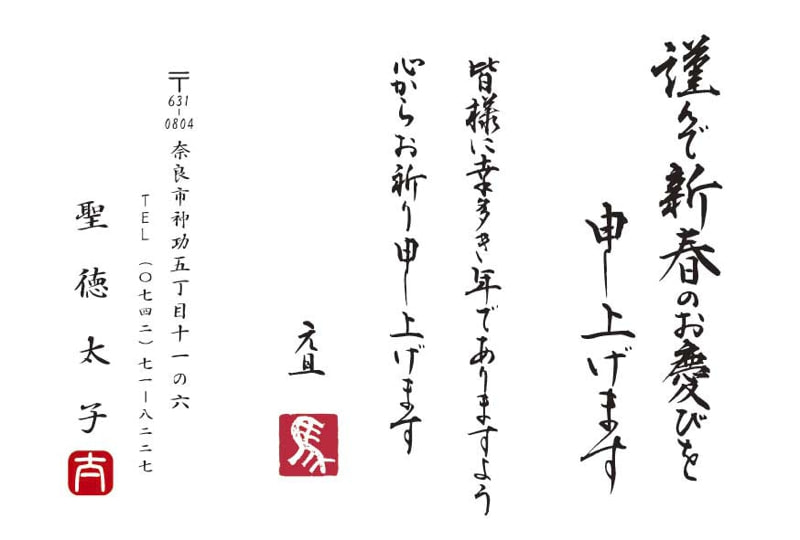 謹んで新春のお慶びを
申し上げます
皆様に幸多き年でありますよう
心からお祈り申し上げます
元旦
馬
〒631-0804
奈良市神功五丁目十一の六
TEL(〇七四二)七一ー八二二七
聖徳太子